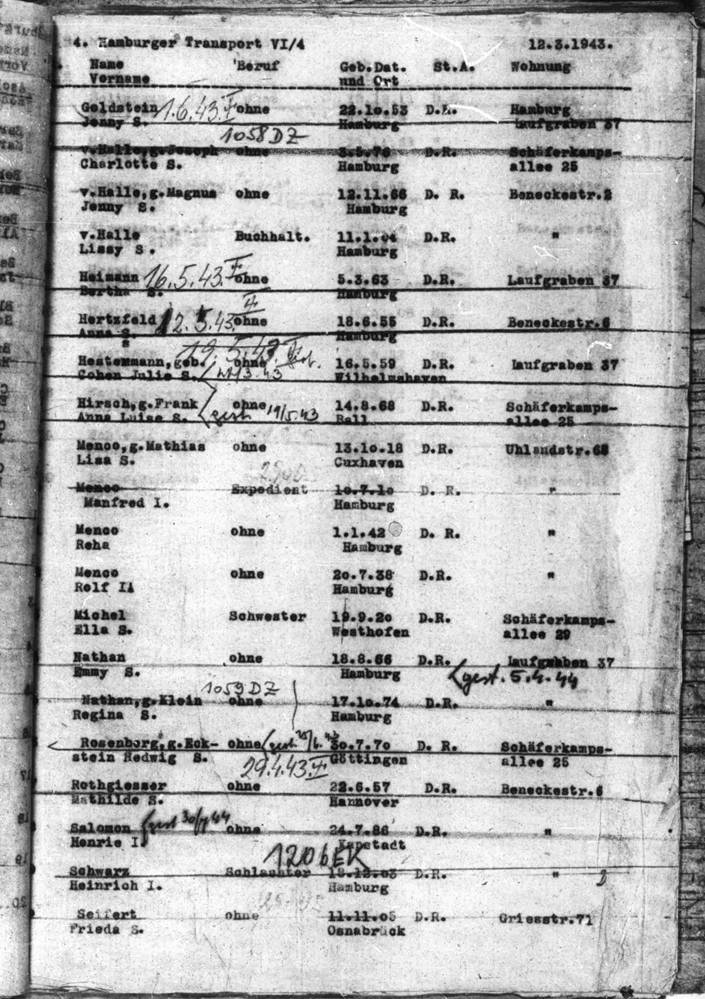 4. Hamburger Transport VI/4 12.3.1943.
Name Beruf Geb.Dat. St.A. Wohnung
Vorname und Ort
Goldstein 1.6.43. ohne 22.10.53 D.R. Hamburg
Jenny S. Hamburg Laufgraben 37
1058 DZ
v.Halle,g.Joseph ohne D.R. Schäferkamps-
Charlotte S. Hamburg allee 25
v.Halle,g.Magnus ohne 12.11.66 D. R. Beneckestr.2
Jenny S. Hamburg
v.Halle Buchhalt. 11.1.04 D.R. "
Lissy S. Hamburg
Heimann 16.5.43. ohne 5.3.63 D.R. Laufgraben 37
Bertha S. Hamburg
Hertzfeld 12.5.43. ohne 18.6.55 D.R. Beneckestr.6
Anna S Hamburg
19.5.43
Hestermann,geb. ohne 16.5.59 D.R. Laufgraben 37
Cohen Julie S. Wilhelmshaven
Hirsch,g.Frank ohne 14.8.68 D.R. Schäferkamps-
Anna Luise S. gest. 19/5.43 allee 25
Menco,g.Mathias ohne 13.10.18 D.R. Uhlandstr.68
Lisa S. Cuxhaven
Menco Expedient 10.7.10 D. R. "
Manfred I. Hamburg
Menco ohne 1.1.42 D. R. "
Reha Hamburg
Menco ohne 20.7.38 D.R. "
Rolf I. Hamburg
Michel Schwester 19.9.20 D.R. Schäferkamps-
Ella S. Westhofen allee 29
Nathan ohne 18.8.66 D.R. Laufgraben 37
Emmy S. Hamburg gest. 5.4.44
1059 DZ
Nathan,g.Klein ohne 17.10.74 D.R. "
Regina S. Hamburg
Rosenborg,g.Eck- ohne gest. 30.7.70 D. R. Schäferkamps-
stein Hedwig S. Göttingen allee 25
29.4.43.
Rothgiesser ohne 22.6.57 D.R. Beneckestr.6
Mathilde S. Hannover
Salomon gest ohne 24.7.86 D.R. "
Henrie I. Kapstadt
1206 EK
Schwarz Schlachter D.R. "
Heinrich I. Hamburg
Seifert ohne 11.11.05 D.R. Griesstr.71
Frieda S. Osnabrück